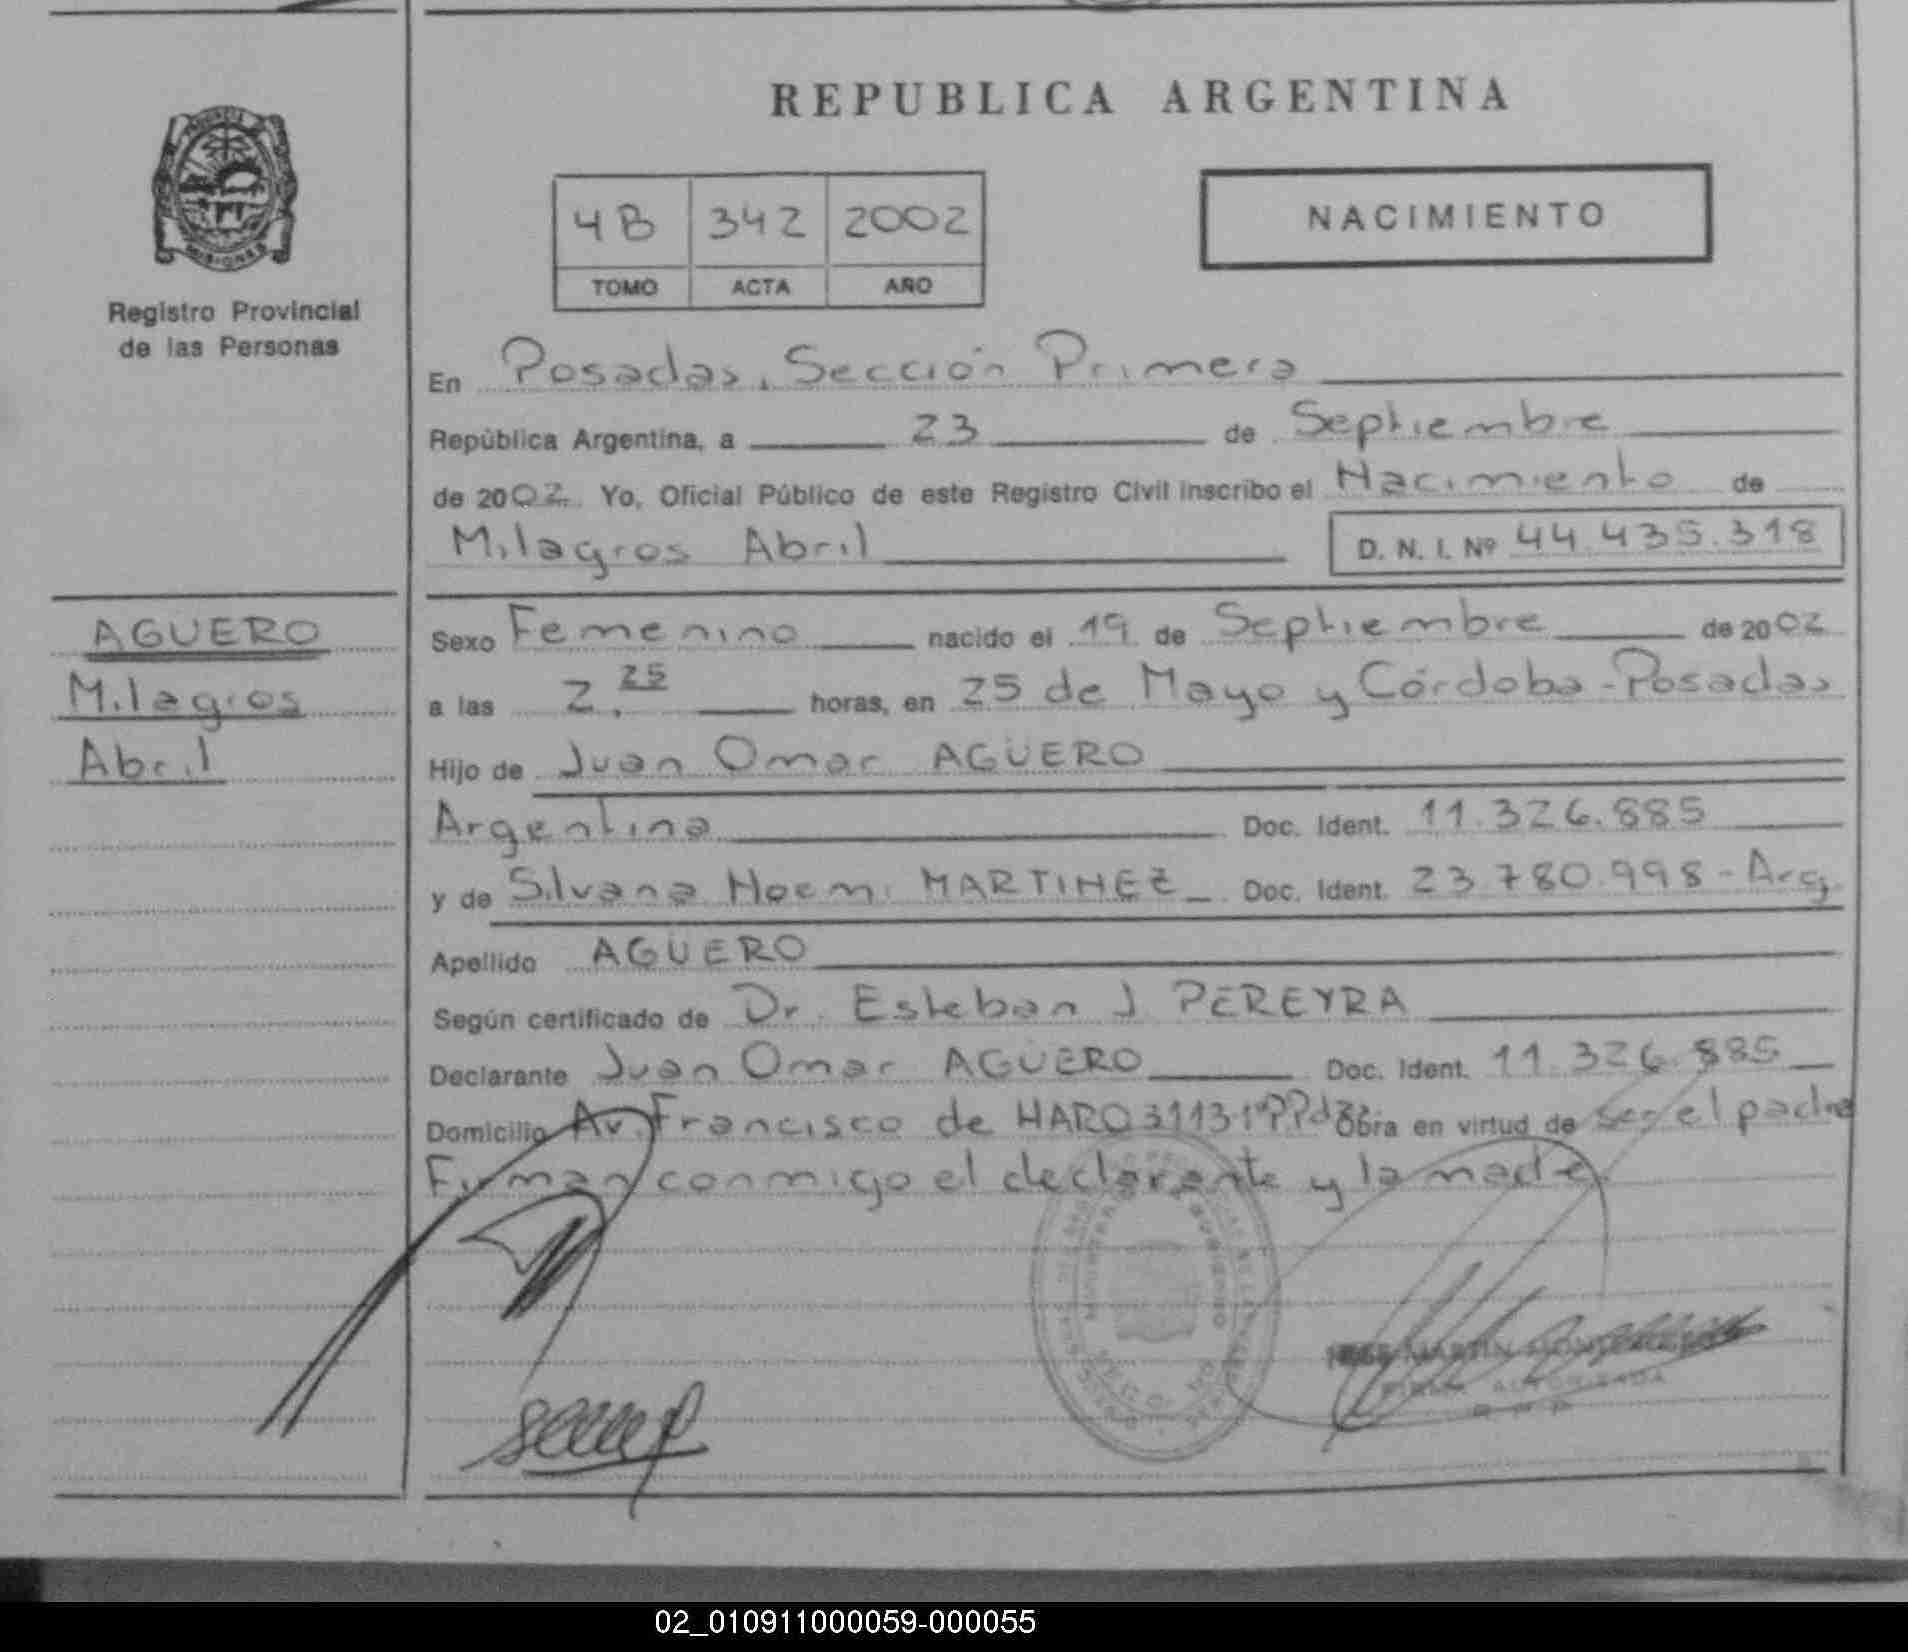 REPUBLICA ARGENTINA
NACIMIENTO
4B 342 2002
TOMO ACTA AÑO
PROVINCIA DE
MISIONES
Registro Provincial
de las Personas
En Posadas, Sección Primera
República Argentina, a 23 de Septiembre
de 2002 Yo, Oficial Público de este Registro Civil inscribo el Nacimiento de
Milagros Abril D. N. I. Nº 44.435.318
AGUERO
Milagros
Abril
Sexo Femenino nacido el 19 de Septiembre de 2002
a las 2.25 horas, en 25 de Mayo y Córdoba - Posadas
Hijo de Juan Omar AGÜERO
Argentina Doc. Ident. 11.326.885
y de Silvana Noemi MARTINEZ Doc. Ident. 23.780.998 - Arg
Apellido AGÜERO
Según certificado de Dr. Esteban J. PEREYRA
Declarante Juan Omar AGÜERO Doc. Ident. 11.326.885
Domicilio Av. Francisco de HARO 3113 Obra en virtud de ser el padre
Firman conmigo el declarante y la madre.
FIRMA AUTORIZADA
R P P
02_010911000059-000055